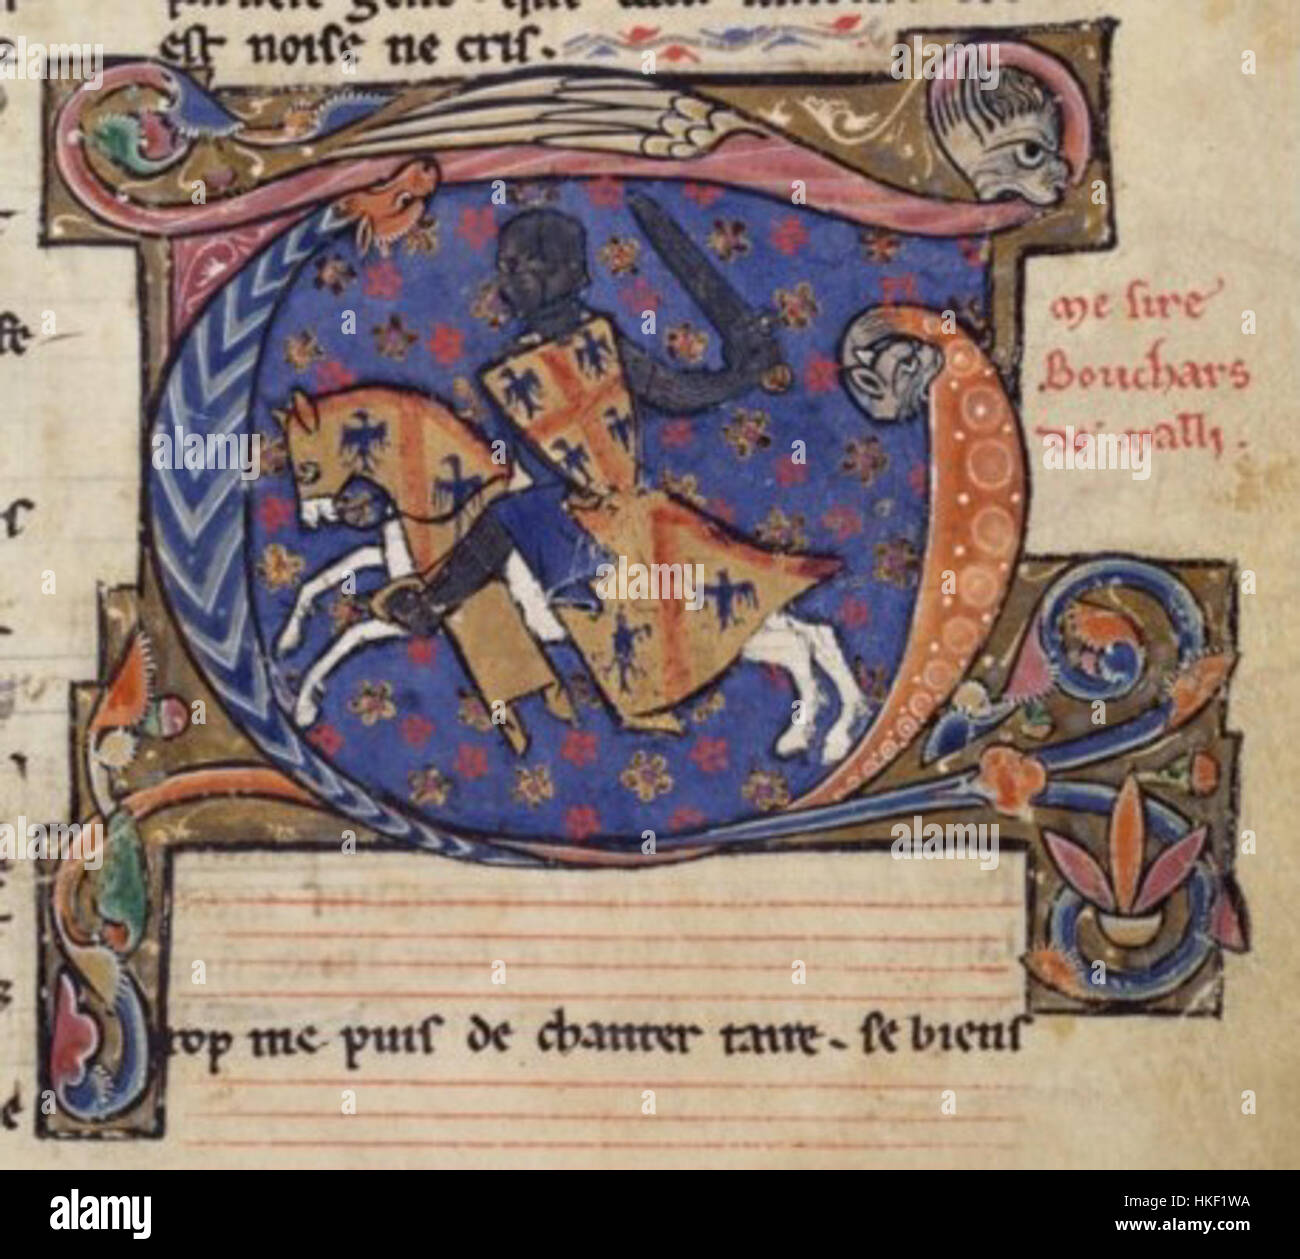 est noise ne cris.
me sire
Bouchars
de malli.
rop me puis de chanter taire. se biens
a
alamy
Image ID: HKF1WA
www.alamy.com